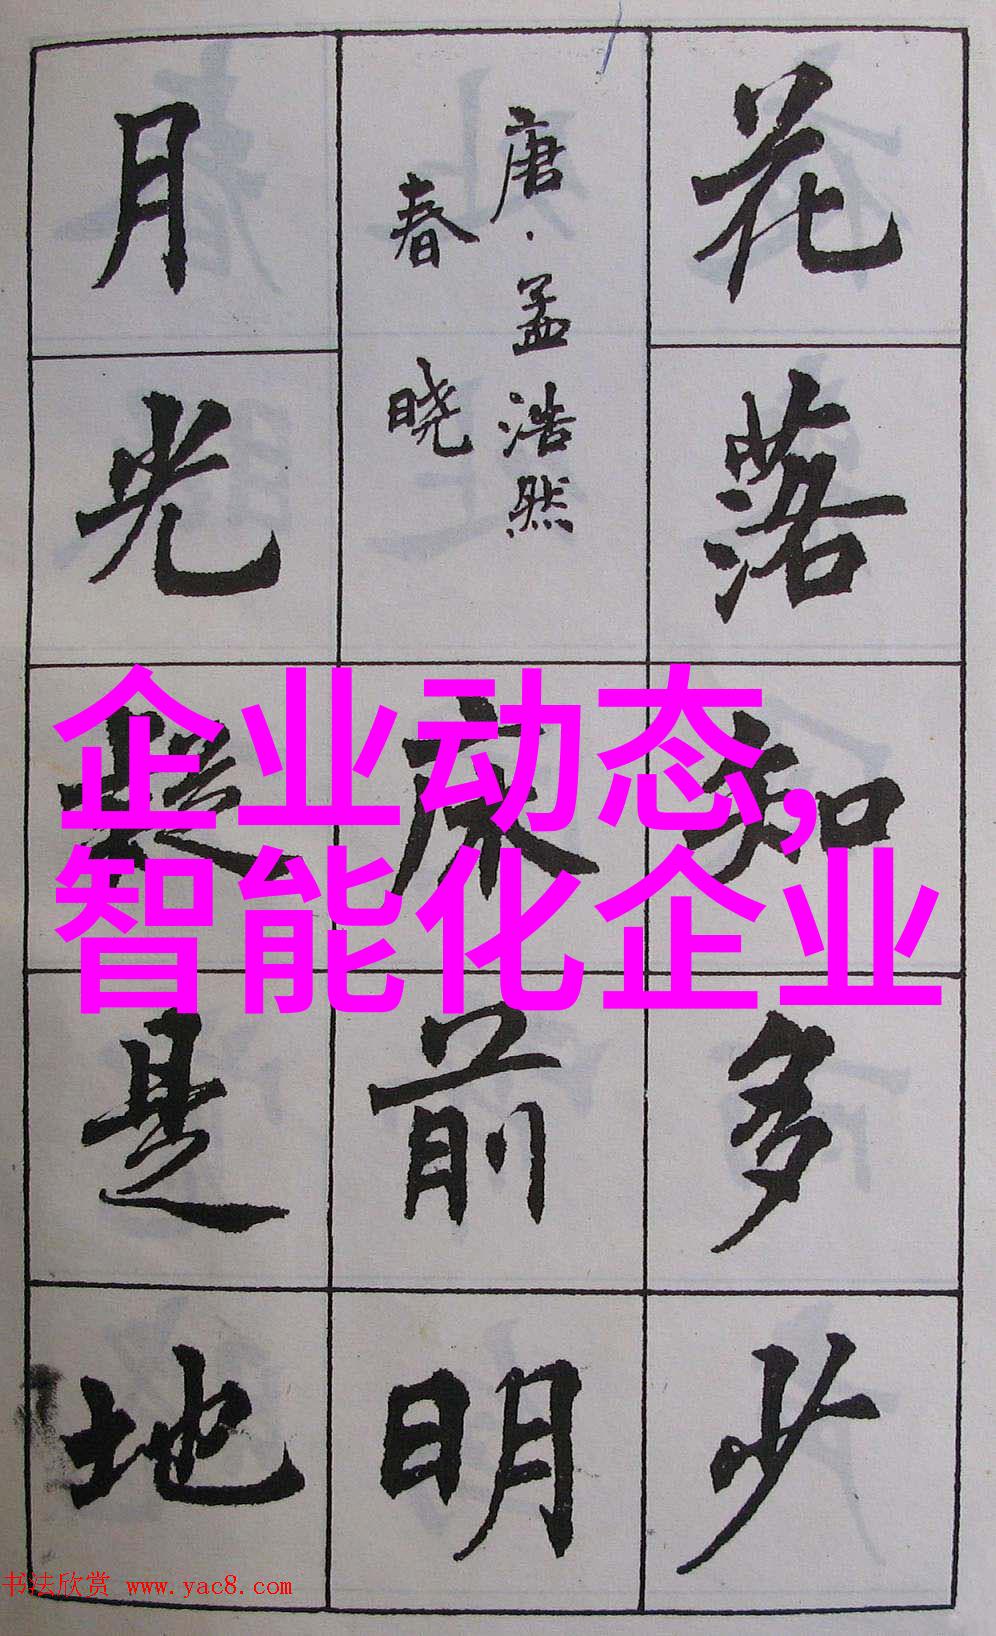 花落知多少
唐·孟浩然
春晓
床前明
月光疑是地
企业动态,
智能化企业
书法欣赏 www.yac8.com